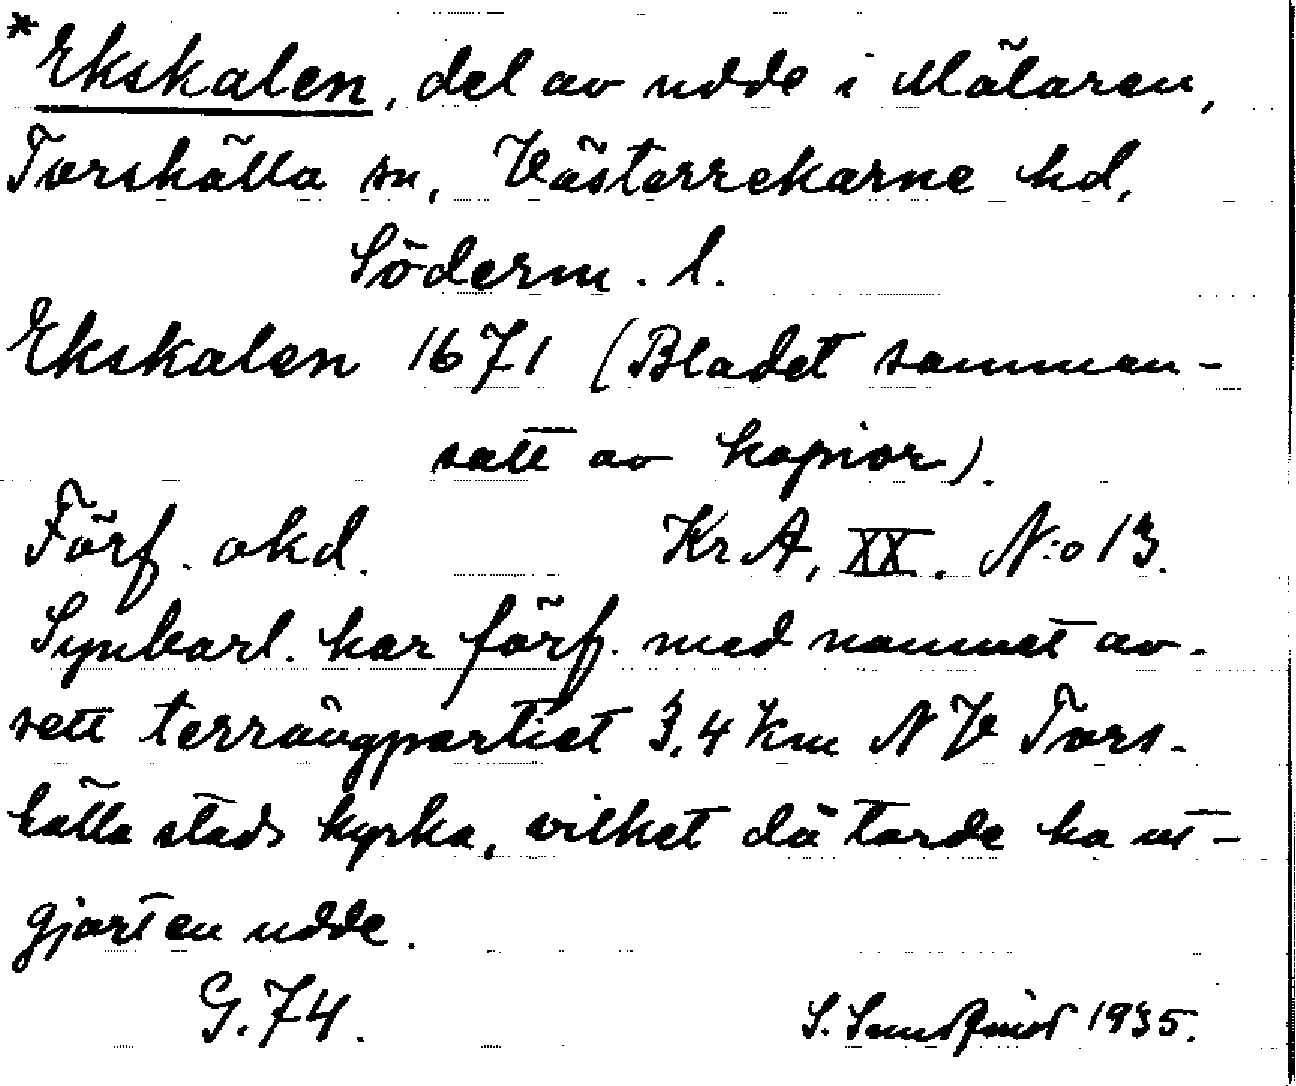 *Ekskalen, del av udde i Mälaren,
Torshälla sn, Västerrekarne hd,
Söderm. l.
Ekskalen 1671 (Bladet samman-
satt av kopior).
Förf. okd. Kr A, XX. N:o 13.
Synbarl. har förf. med namnet av-
sett terrängpartiet 3,4 km NV Tors-
hälla stads kyrka, vilket då torde ha ut-
gjort en udde.
G. 74. S. Sundqvist 1935.